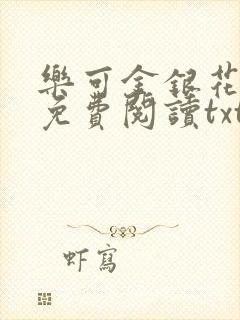 樂可金銀花
免費閱讀txt
虾寫